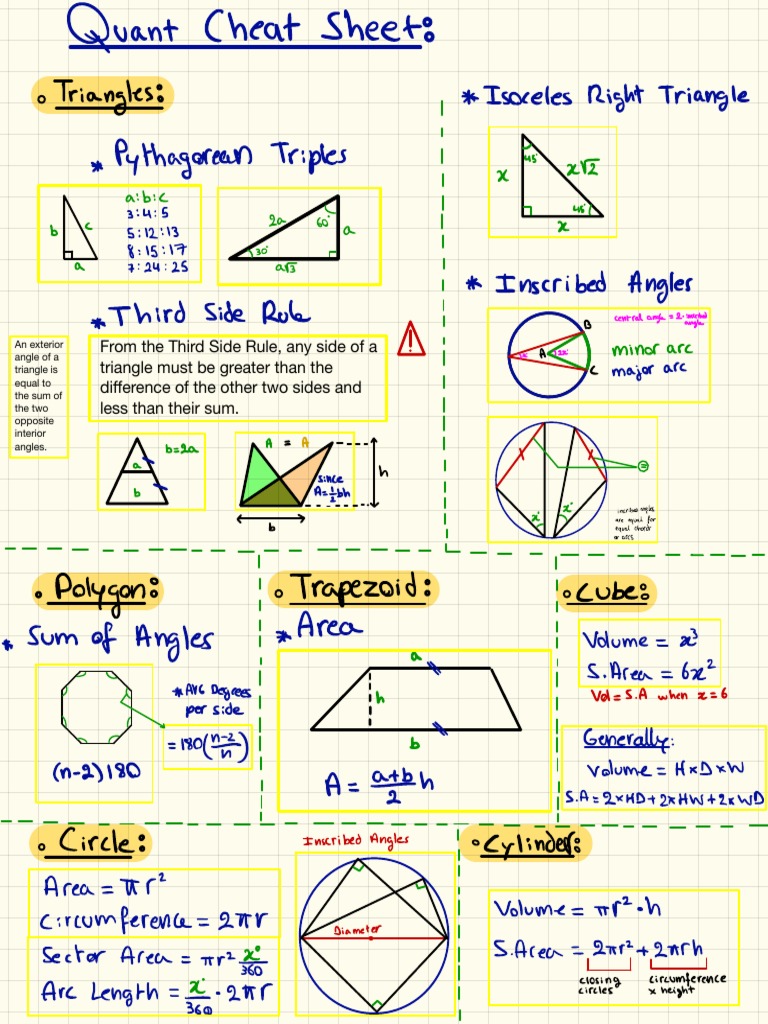 Quant Cheat Sheet:
Triangles:
* Pythagorean Triples
b
c
a
a:b:c
3:4:5
5:12:13
8:15:17
7:24:25
2a
60°
a
30°
a√3
* Third Side Rule
An exterior
angle of a
triangle is
equal to
the sum of
the two
opposite
interior
angles.
From the Third Side Rule, any side of a
triangle must be greater than the
difference of the other two sides and
less than their sum.
a
b
b=2a
A = A
since
A=½bh
h
b
* Isoceles Right Triangle
45°
x
x√2
45°
x
* Inscribed Angles
B
A
x°
2x°
C
central angle = 2·
angle
minor arc
major arc
=
x°
x°
angles
are equal for
equal chords
or arcs
Polygon:
* Sum of Angles
* AVG Degrees
per side
=180(n-2/n)
(n-2)180
Trapezoid:
* Area
a
h
b
A = a+b/2 h
Cube:
Volume = x³
S.Area = 6x²
Vol=S.A when x=6
Generally:
Volume = H×D×W
S.A=2×HD+2×HW+2×WD
Circle:
Area = πr²
Circumference = 2πr
Sector Area = πr² x°/360
Arc Length = x°/360 · 2πr
Inscribed Angles
Diameter
Cylinder:
Volume = πr²·h
S.Area = 2πr² + 2πrh
closing
circles
circumference
x height